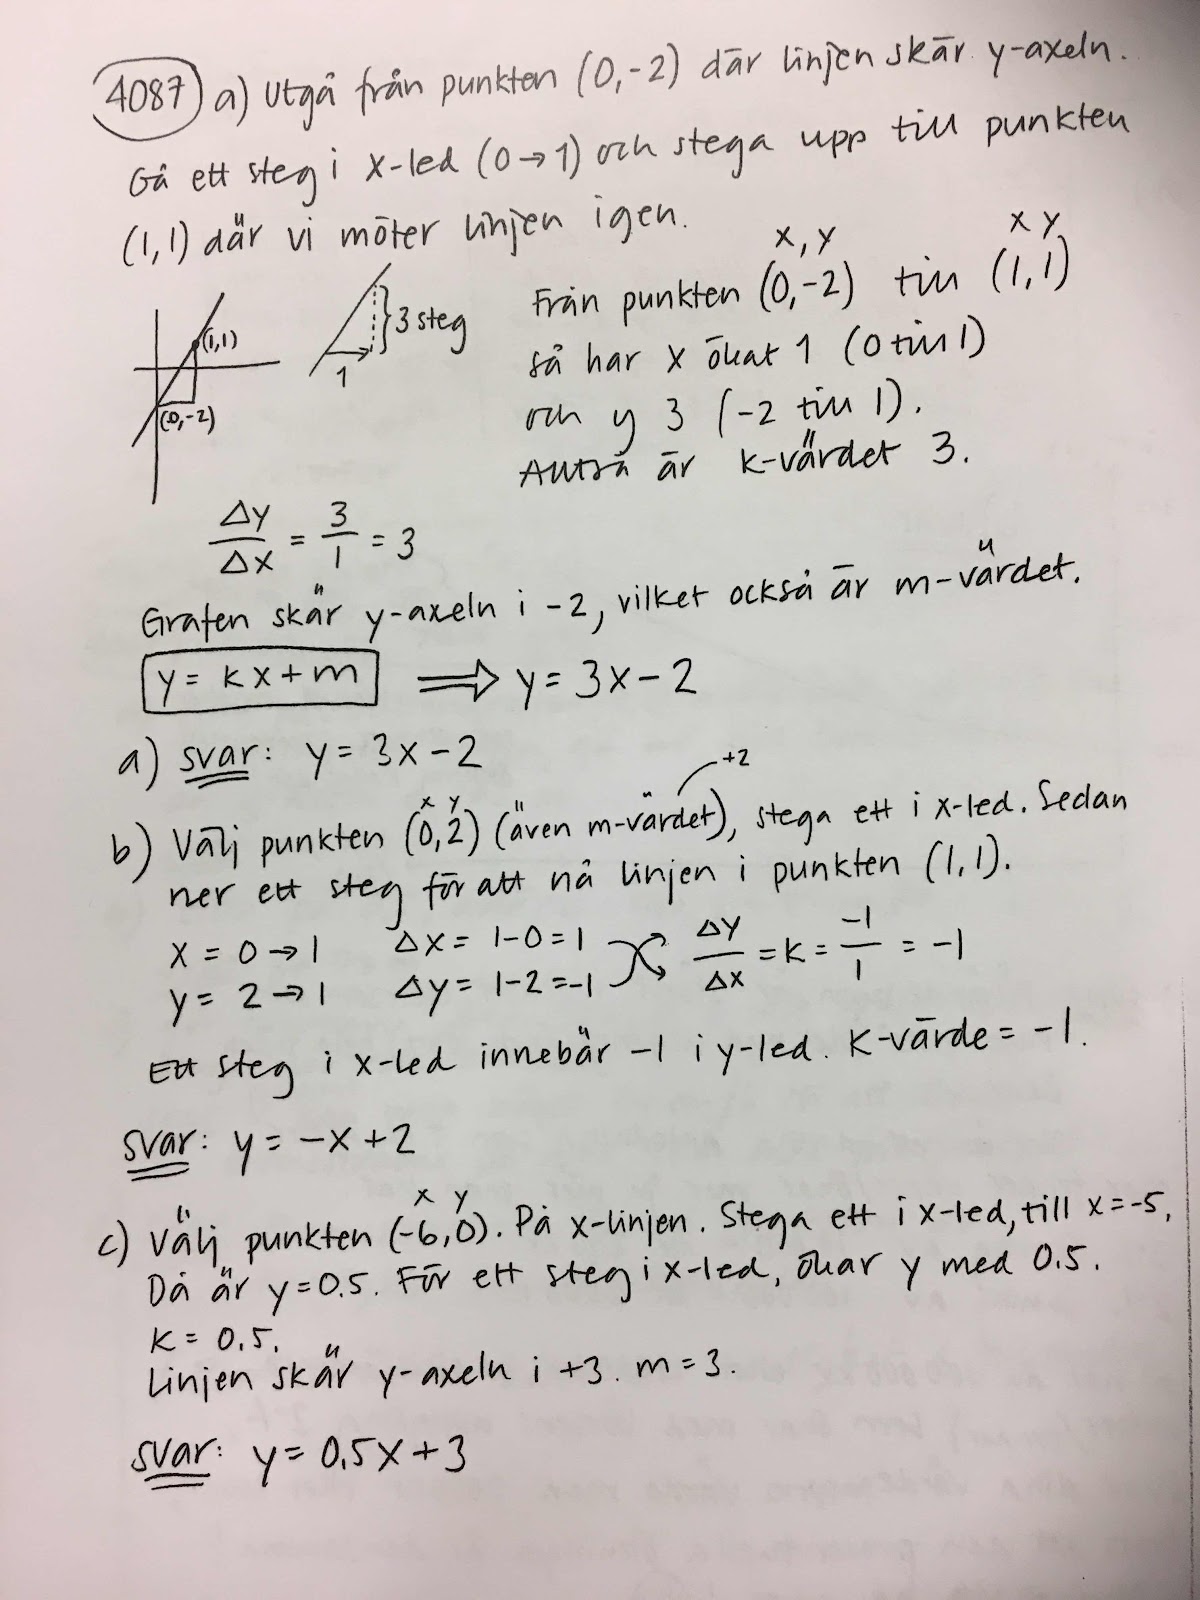 4087 a) Utgå från punkten (0,-2) där linjen skär y-axeln.
Gå ett steg i x-led (0→1) och stega upp till punkten
(1,1) där vi möter linjen igen.
x, y x y
Från punkten (0,-2) till (1,1)
så har x ökat 1 (0 till 1)
och y 3 (-2 till 1).
Alltså är k-värdet 3.
(1,1)
(0,-2)
3 steg
1
Δy/Δx = 3/1 = 3
Grafen skär y-axeln i -2, vilket också är m-värdet.
y = kx+m ⟹ y = 3x-2
a) svar: y = 3x-2
+2
x y
b) Välj punkten (0,2) (även m-värdet), stega ett i x-led. Sedan
ner ett steg för att nå linjen i punkten (1,1).
x = 0→1 Δx = 1-0=1
y = 2→1 Δy = 1-2=-1
Δy/Δx = k = -1/1 = -1
Ett steg i x-led innebär -1 i y-led. k-värde = -1.
svar: y = -x+2
x y
c) Välj punkten (-6,0). På x-linjen. Stega ett i x-led, till x=-5.
Då är y=0.5. För ett steg i x-led, ökar y med 0.5.
k = 0.5.
Linjen skär y-axeln i +3. m=3.
svar: y = 0.5x+3